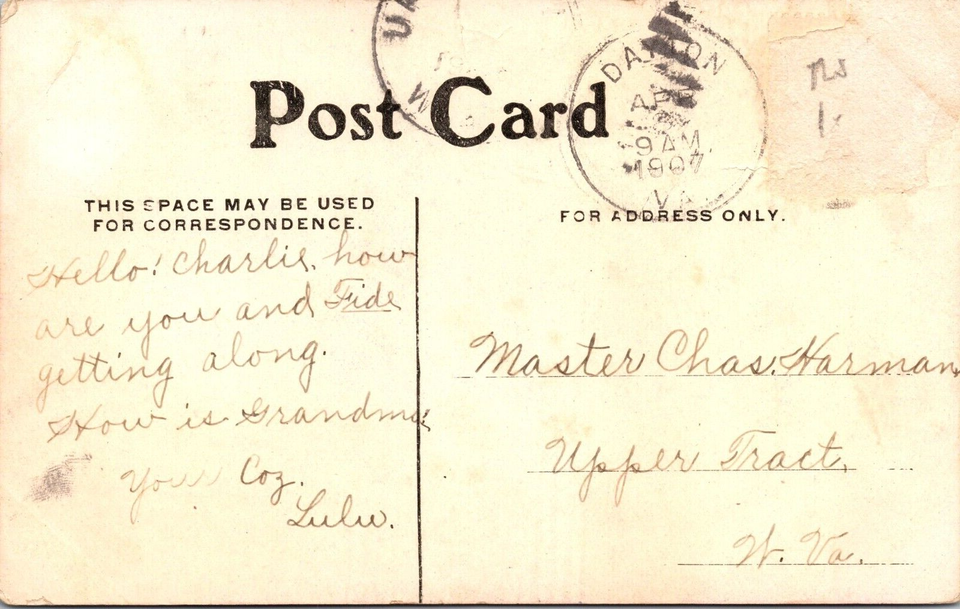 Post Card
DAYTON
APR
9 AM
1907
VA.
THIS SPACE MAY BE USED
FOR CORRESPONDENCE.
FOR ADDRESS ONLY.
Hello! Charlie, how
are you and Fide
getting along.
How is Grandma.
Your Coz.
Lulu.
Master Chas. Harman,
Upper Tract,
W. Va.